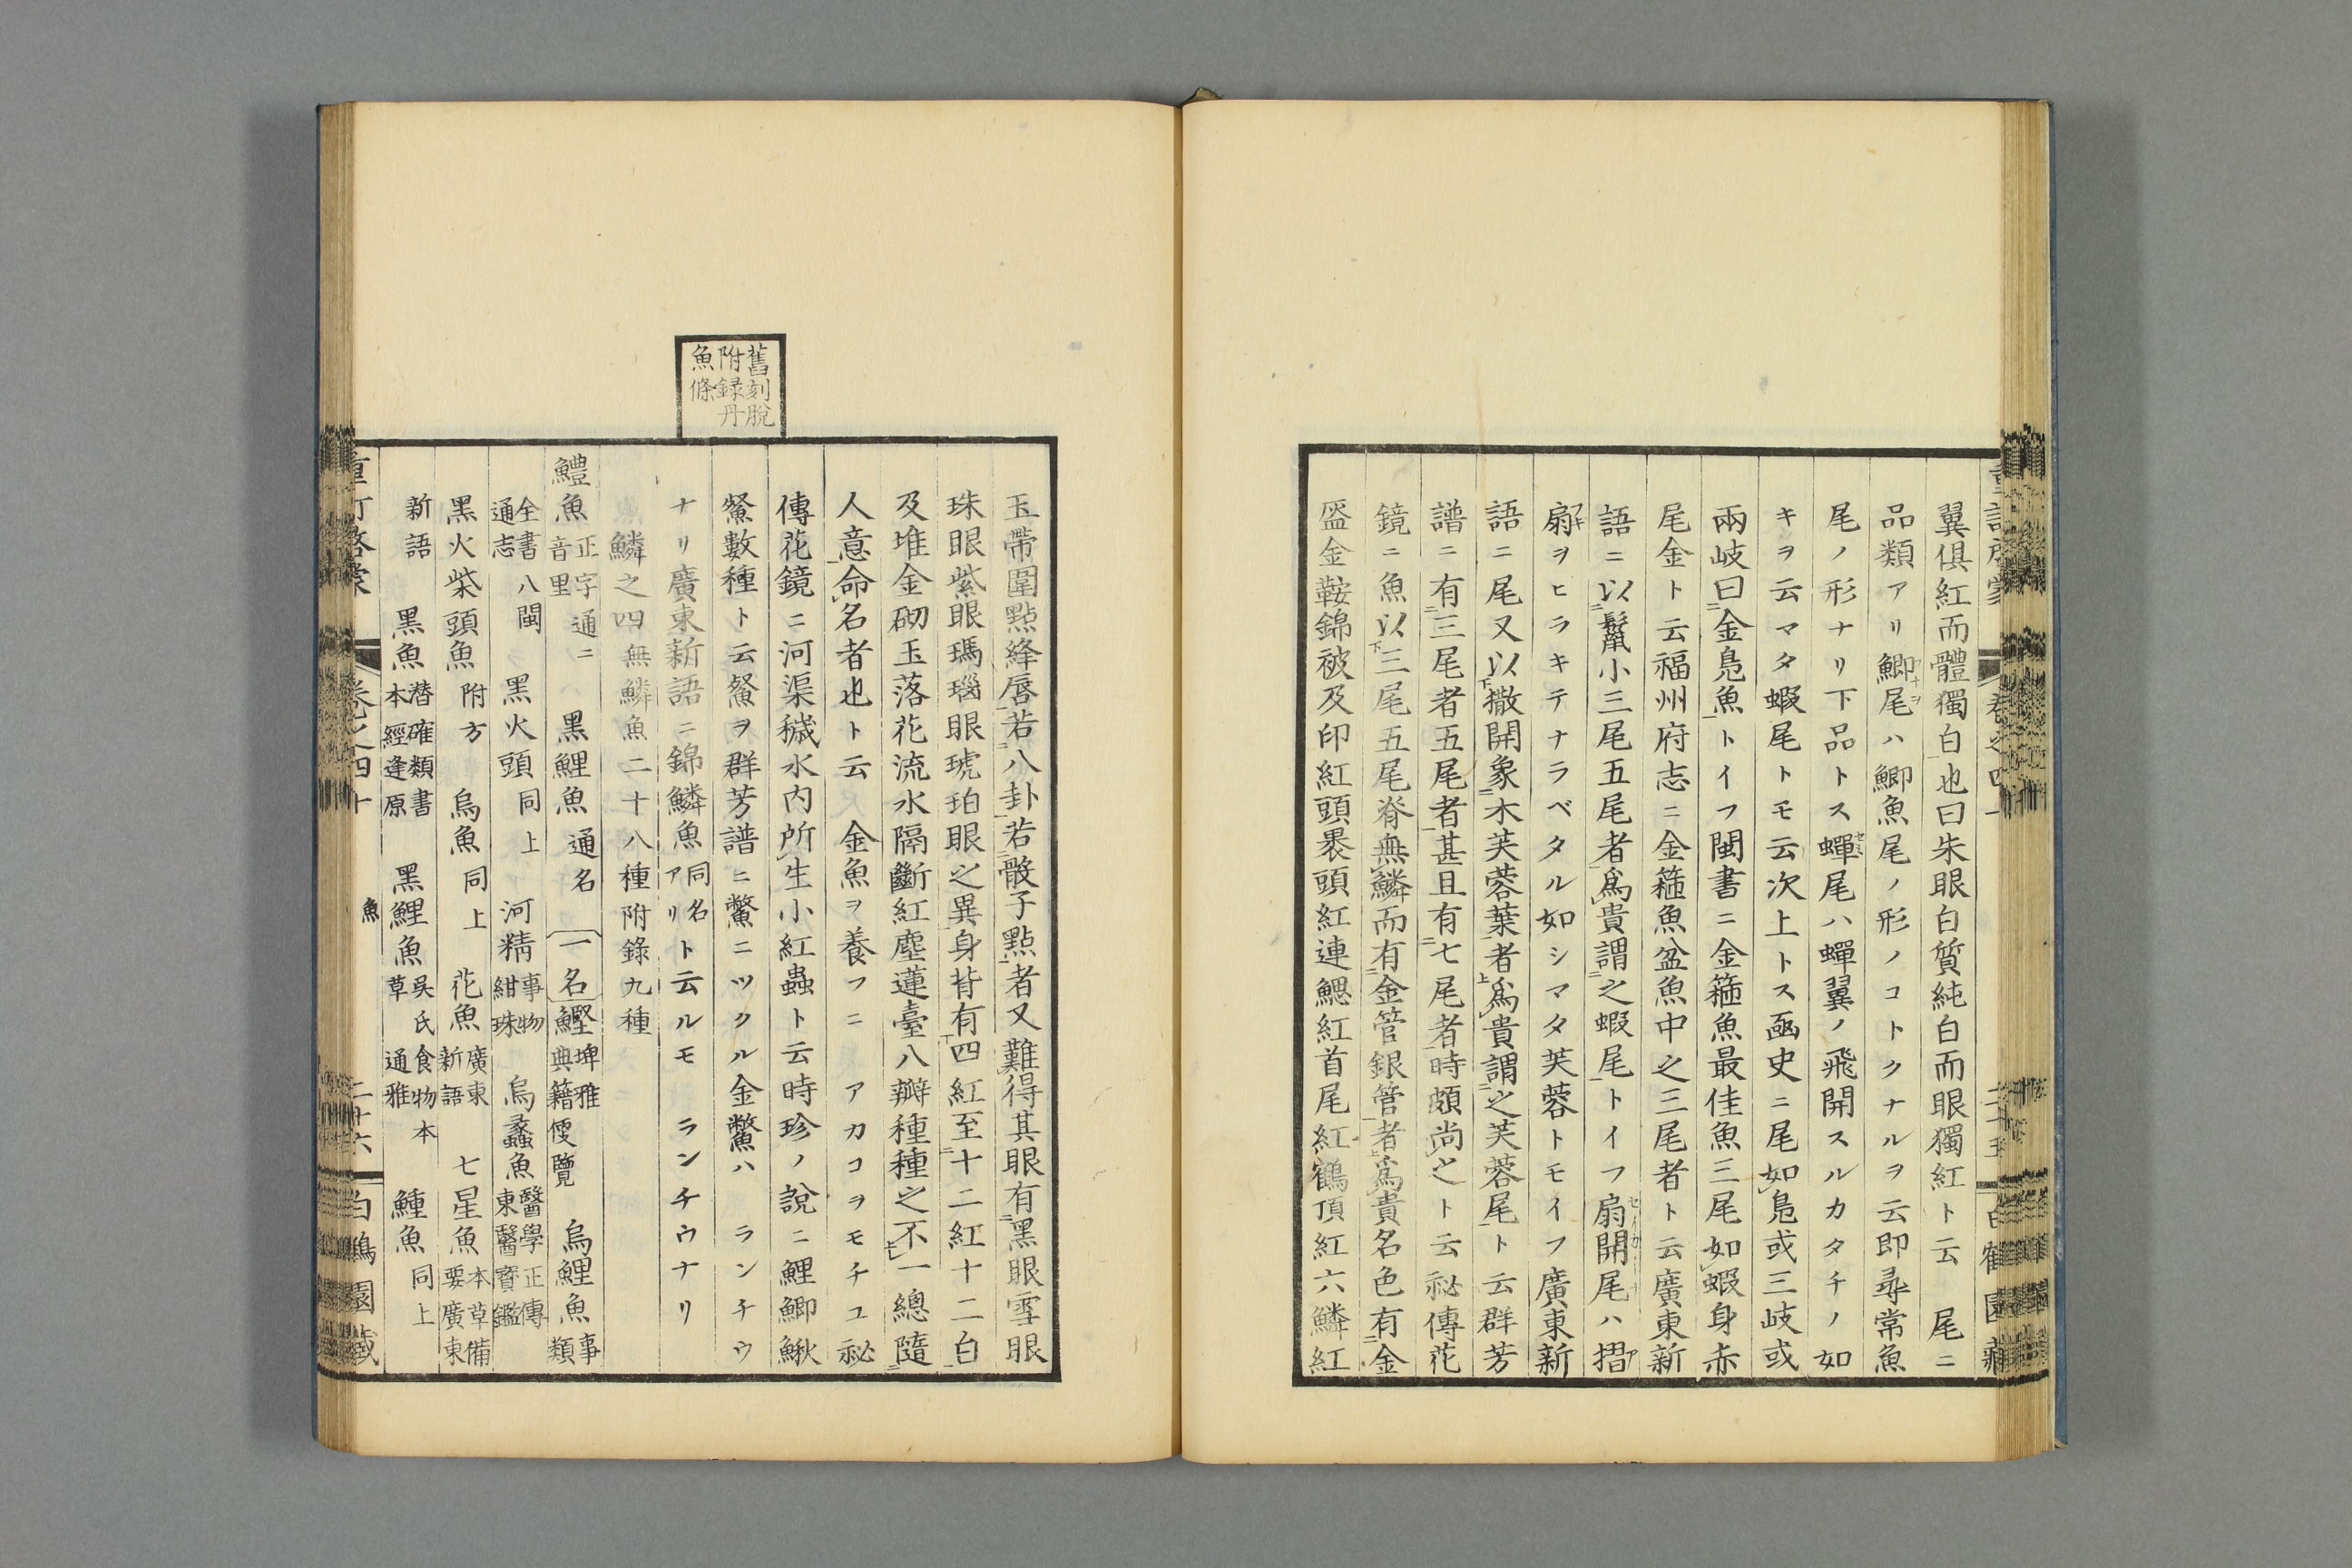 翼俱紅而體獨白也曰朱眼白質純白而眼獨紅ト云 尾ニ
品類アリ鯽尾ハ鯽魚尾ノ形ノコトクナルヲ云即尋常魚
尾ノ形ナリ下品トス蟬尾ハ蟬翼ノ飛開スルカタチノ如
キヲ云マタ蝦尾トモ云次上トス函史ニ尾如鳬或三岐或
兩岐曰金鳬魚トイフ閩書ニ金箍魚最佳魚三尾如蝦身赤
尾金ト云福州府志ニ金箍魚盆魚中之三尾者ト云廣東新
語ニ以鬣小三尾五尾者爲貴謂之蝦尾トイフ扇開尾ハ摺
扇ヲヒラキテナラベタル如シマタ芙蓉トモイフ廣東新
語ニ尾又以撒開象木芙蓉葉者爲貴謂之芙蓉尾ト云群芳
譜ニ有三尾者五尾者甚且有七尾者時頗尚之ト云祕傳花
鏡ニ魚以三尾五尾脊無鱗而有金管銀管者爲貴名色有金
盔金鞍錦被及印紅頭裹頭紅連鰓紅首尾紅鶴頂紅六鱗紅
玉帶圍點絳唇若八卦若骰子點者又難得其眼有黑眼雪眼
珠眼紫眼瑪瑙眼琥珀眼之異身背有四紅至十二紅十二白
及堆金砌玉落花流水隔斷紅塵蓮臺八瓣種種之不一總隨
人意命名者也ト云 金魚ヲ養フニ アカコヲモチユ祕
傳花鏡ニ河渠穢水内所生小紅蟲ト云時珍ノ說ニ鯉鯽鰍
鱉數種ト云鱉ヲ群芳譜ニ鱉ニツクル金鱉ハ ランチウ
ナリ廣東新語ニ錦鱗魚同名アリト云ルモ ランチウナリ
舊刻脫
附録丹
魚條
鱗之四無鱗魚二十八種附錄九種
鱧魚正字通ニ音里 黑鯉魚通名 一名鰹埤雅典籍便覽 烏鯉魚事類
全書通志 八閩 黑火頭同上 河精事物紺珠 烏蠡魚醫學正傳東醫寶鑑
黑火柴頭魚附方 烏魚同上 花魚廣東新語 七星魚本草備要廣東
新語 黑魚潛確類書本經逢原 黑鯉魚吳氏食物本草通雅 鱦魚同上
魚
卷之四十
二十六